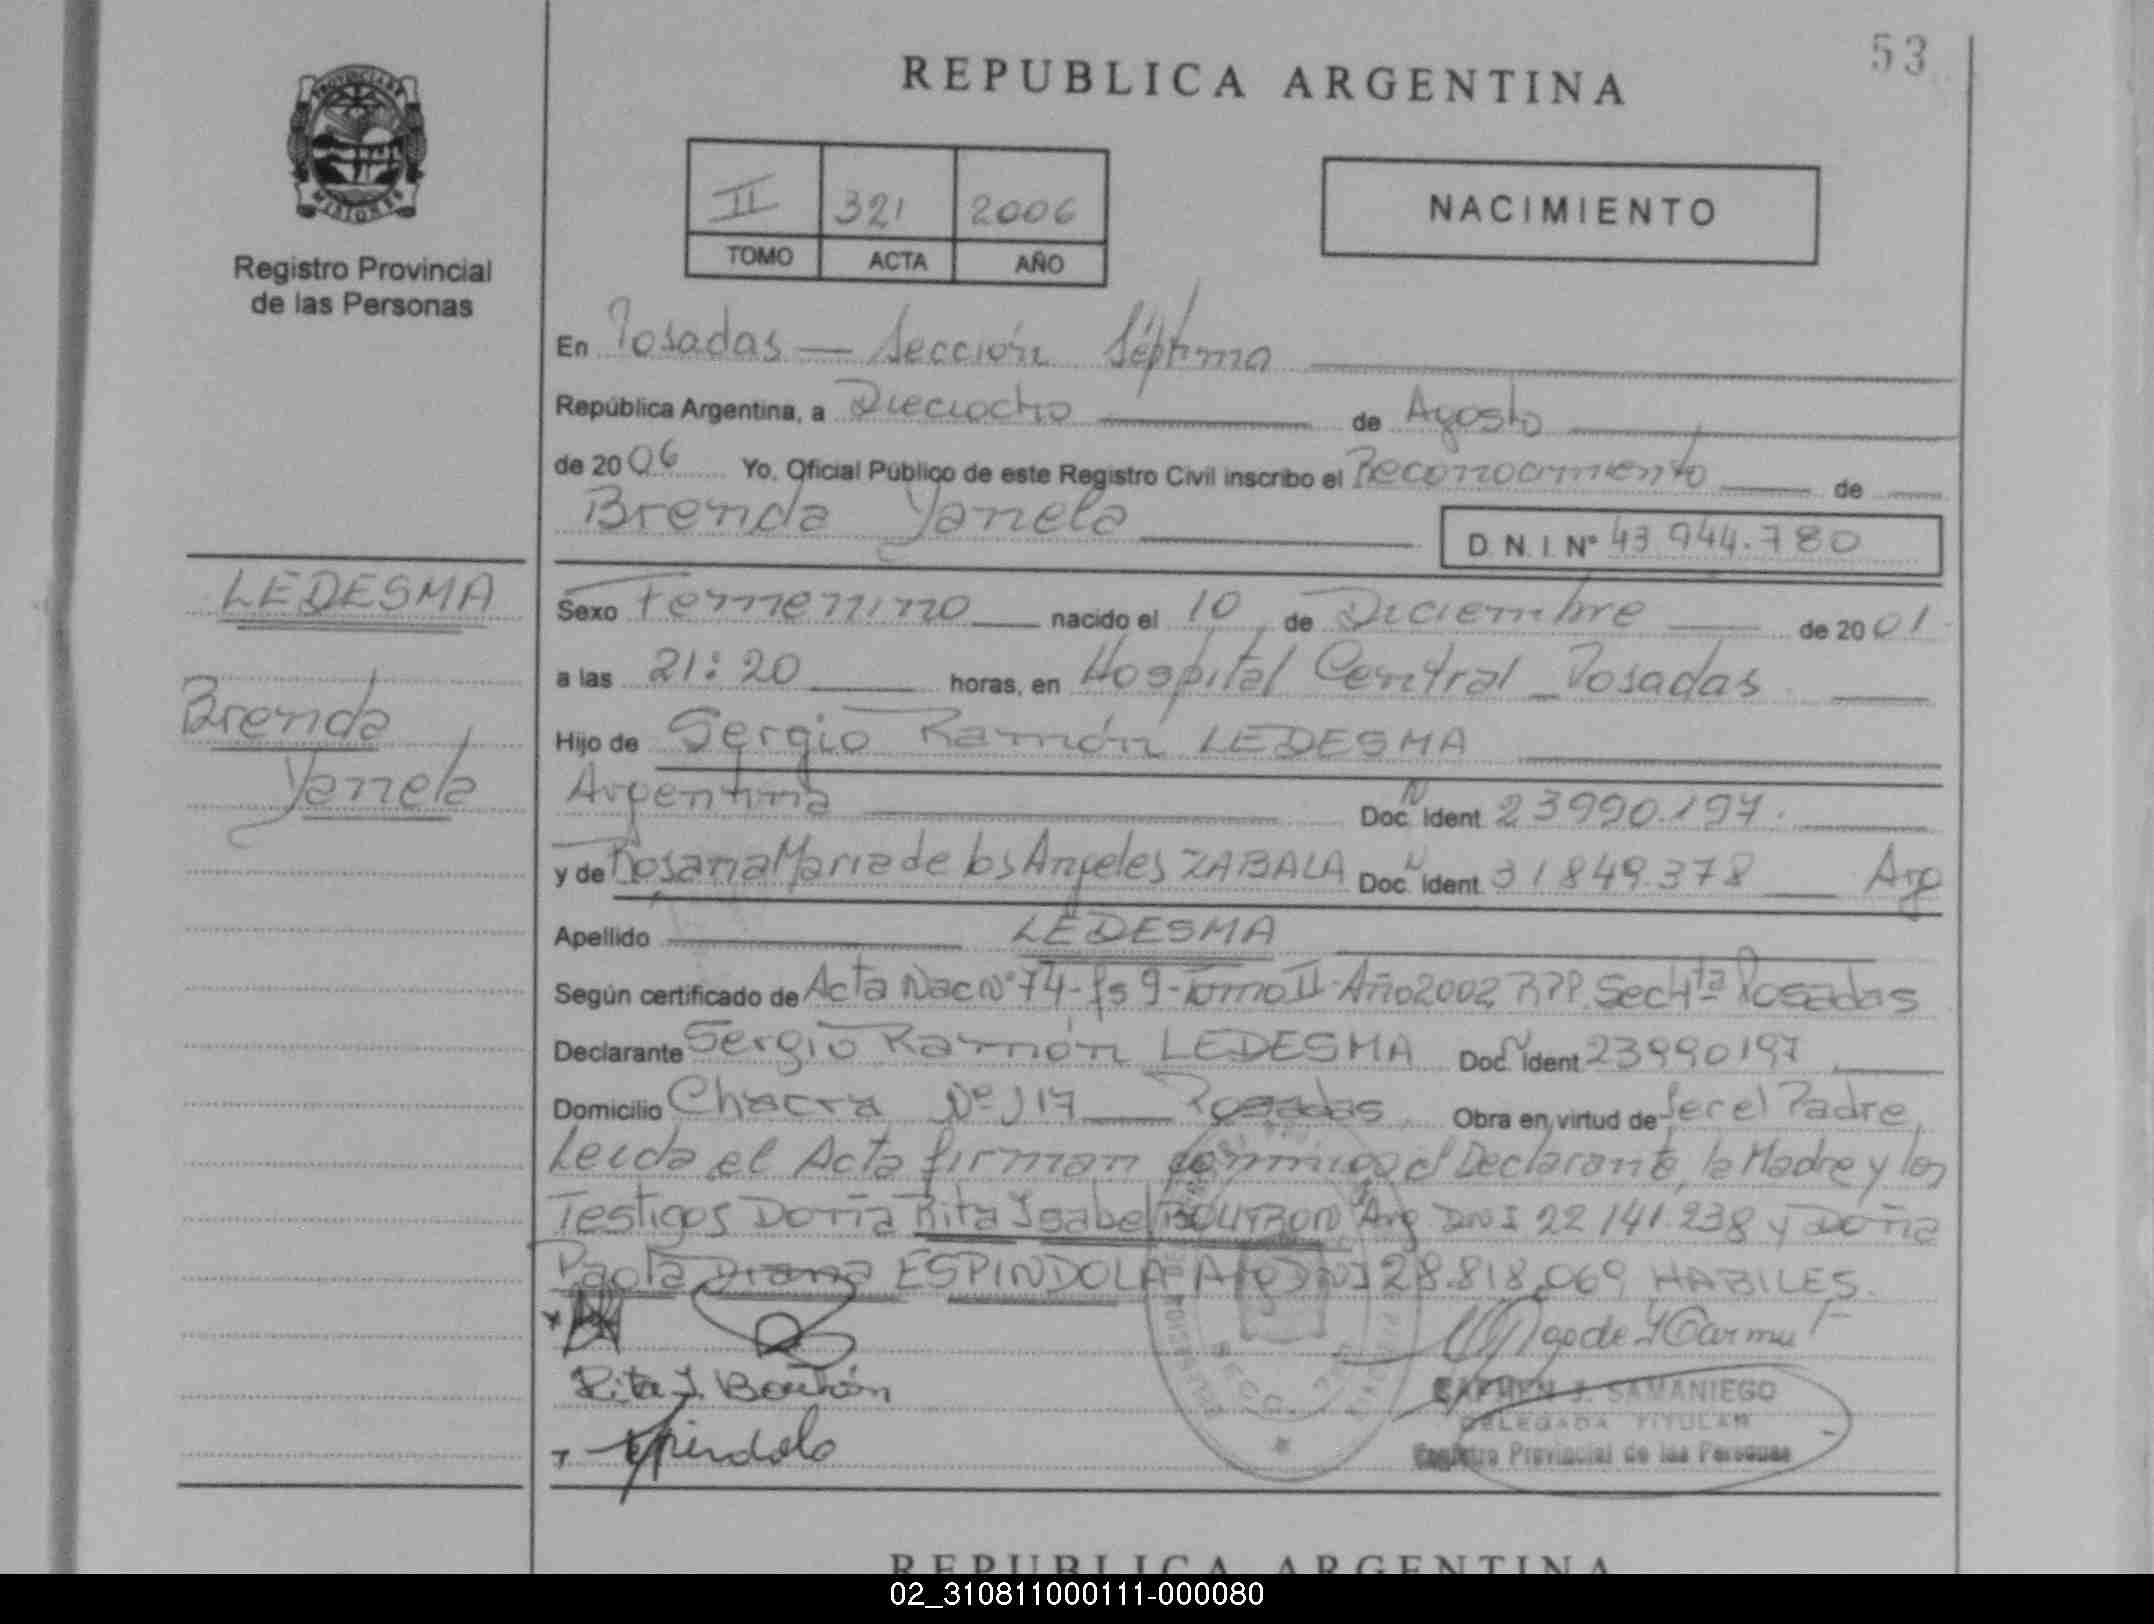 53
REPUBLICA ARGENTINA
PROVINCIA DE
MISIONES
Registro Provincial
de las Personas
II 321 2006
TOMO ACTA AÑO
NACIMIENTO
En Posadas — Sección Séptima
República Argentina, a Dieciocho de Agosto
de 2006 Yo, Oficial Público de este Registro Civil inscribo el Reconocimiento de
Brenda Yanela
D.N.I. Nº 43.944.780
LEDESMA
Brenda
Yanela
Sexo Femenino nacido el 10 de Diciembre de 2001
a las 21:20 horas, en Hospital Central Posadas
Hijo de Sergio Ramón LEDESMA
Argentina Doc. N Ident 23990.197.
y de Rosana Maria de los Angeles ZABALA Doc. N Ident 31849.378 Arg
Apellido LEDESMA
Según certificado de Acta Nac Nº 74 - fs 9 - Tomo II - Año 2002 RPP. Sec 4ta Posadas
Declarante Sergio Ramón LEDESMA Doc. N Ident 23990197
Domicilio Chacra Nº 117 Posadas Obra en virtud de Ser el Padre,
Leida el Acta firman conmigo el Declarante, la Madre y los
Testigos Doña Rita Isabel BOURBON Arg DNI 22 141.238 y Doña
Paola Diana ESPINDOLA Arg DNI 28.818.069 HABILES.
Espindola
CARMEN J. SAMANIEGO
DELEGADA TITULAR
Registro Provincial de las Personas
REPUBLICA ARGENTINA
02_310811000111-000080